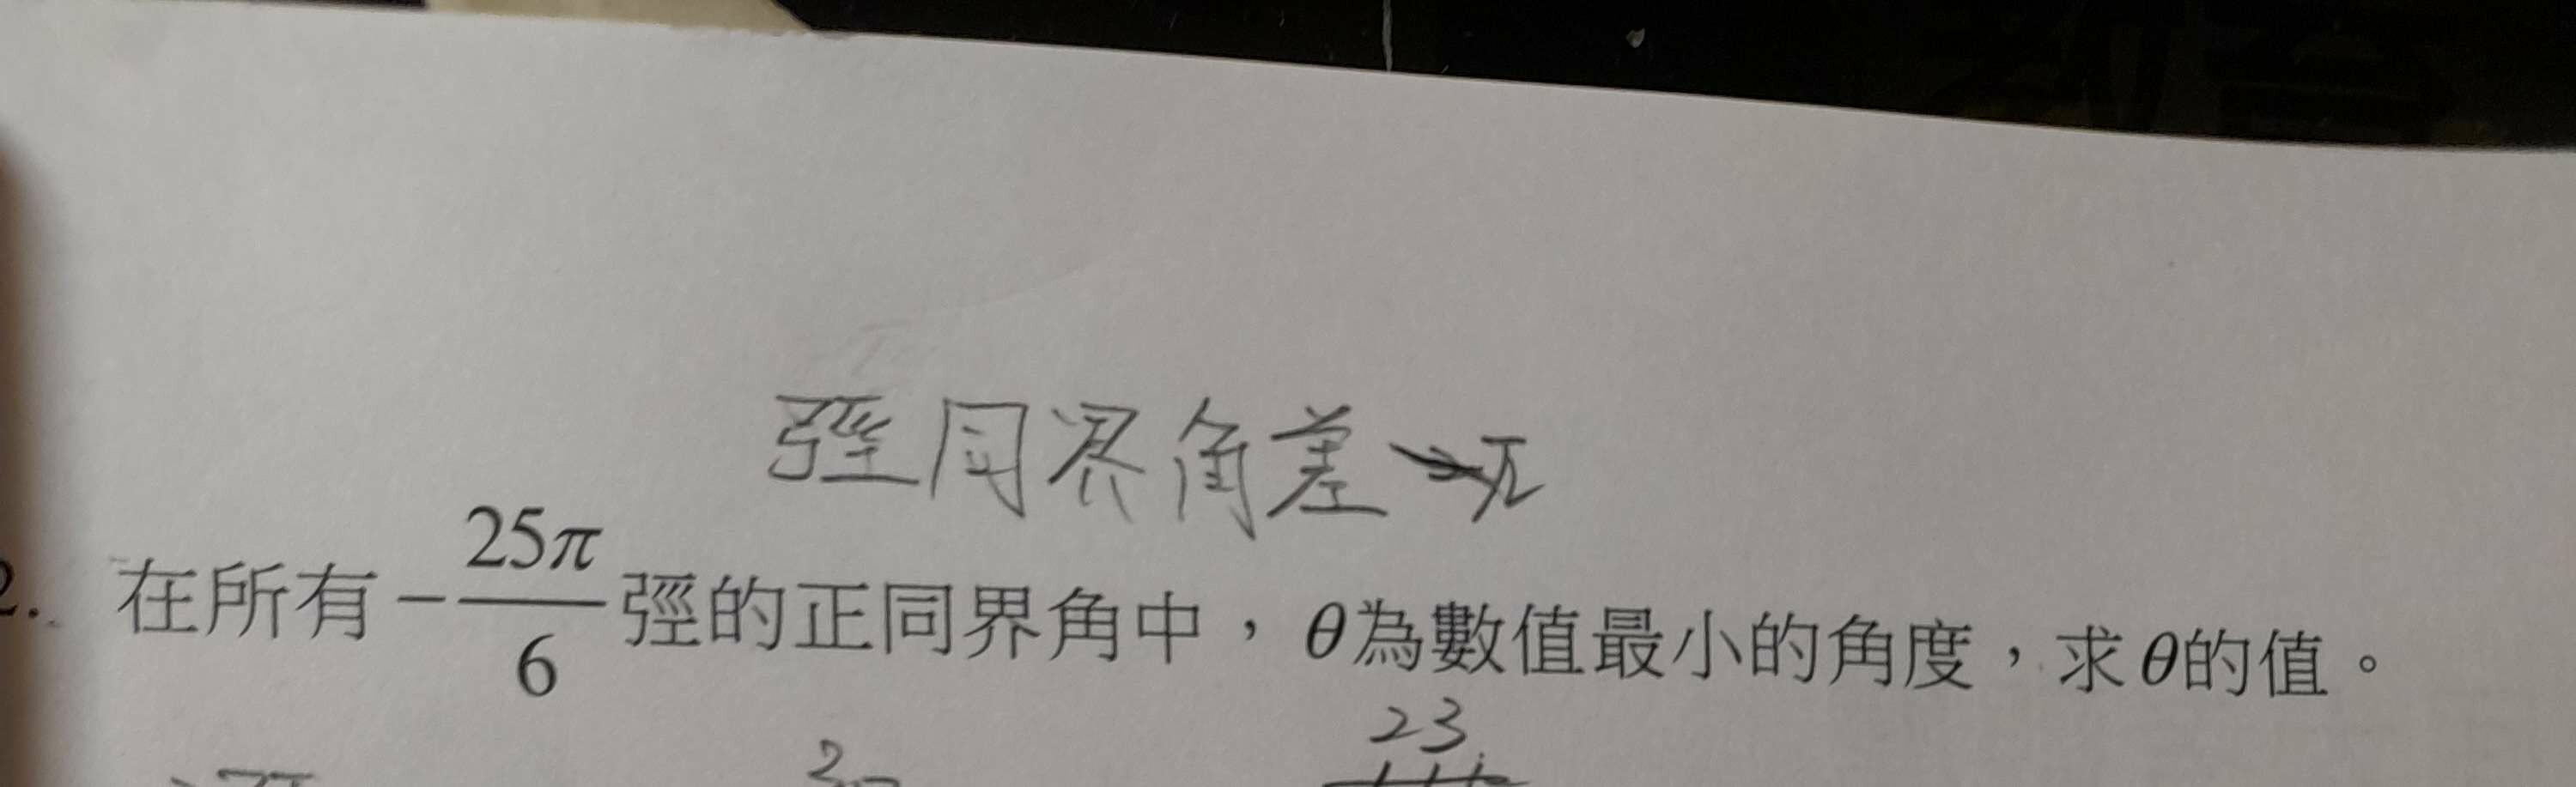 弳同界角差
2. 在所有 -25π/6 弳的正同界角中，θ為數值最小的角度，求θ的值。
23